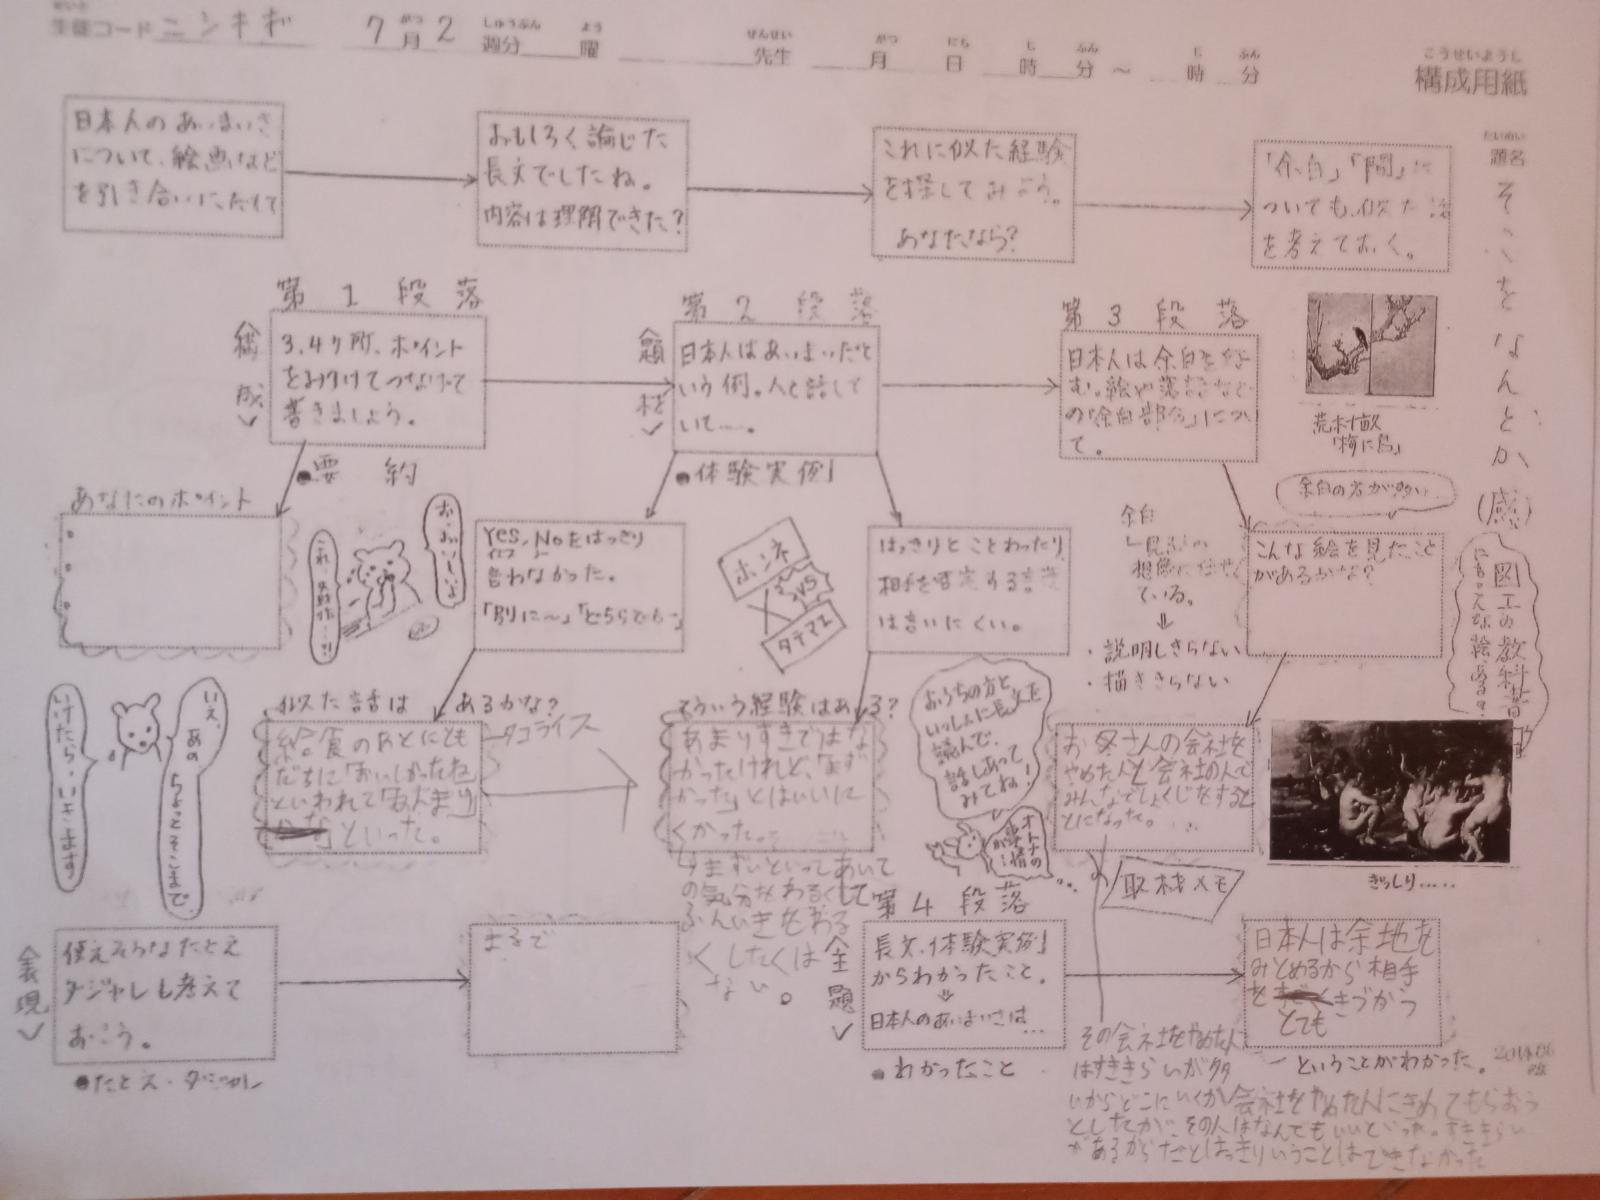 生徒コード ニシキギ 7月2週分 曜 先生 月 日 時 分 ~ 時 分
せいと がつ しゅうぶん よう せんせい がつ にち じ ふん じ ふん
こうせいようし
構成用紙
だいめい
題名 そこをなんとか (感)
日本人のあいまいさ
について、絵画など
を引き合いにだして
おもしろく論じた
長文でしたね。
内容は理解できた?
これに似た経験
を探してみよう。
あなたなら?
「余白」「間」に
ついても、似た話
を考えておく。
第1段落
<構成>
3.4ヶ所、ポイント
をおさけてつなげて
書きましょう。
●要約
あなたのポイント
お、おいしいよ
これ、失敗作…?!
第2段落
<題材>
日本人はあいまいだと
いう例。人と話して
いて…。
●体験実例1
Yes,Noをはっきり
イエス ノー
言わなかった。
「別に〜」「どちらでも〜」
ホンネ
VS
タテマエ
はっきりとことわったり
相手を否定する言葉
は言いにくい。
第3段落
日本人は余白を好
む。絵や落語など
の「余白部分」につい
て。
荒木十畝
「梅に鳥」
余白の方が多い…
余白
見る人の
想像に任せ
ている。
⇓
・説明しきらない
・描ききらない
こんな絵を見たこと
があるかな?
図工の教科書
にもこんな絵、ある?
いえ、あの
ちょっとそこまで
いけたら、いきます
似た話は あるかな?
給食のあとにとも
だちに「おいしかったね」
といわれて「あんまり」
といった。
タコライス
そういう経験はある?
あまりすきではな
かったけれど、「まず
かった」とはいいに
くかった。
まずいといってあいて
の気分をわるくして
ふんいきをわる
くしたくは
ない。
おうちの方と
いっしょに長文を
読んで、
話しあって
みてね!
オトナの
事情
が…
お父さんの会社を
やめた人と会社の人で
みんなでしょくじをするこ
とになった。
取材メモ
ぎっしり……
その会社をやめた人
はすききらいが多
いからどこにいくか会社をやめた人にきめてもらおう
としたが、その人はなんでもいいといった。すききらい
があるからだとはっきりいうことはできなかった
<表現>
使えそうなたとえ
ダジャレも考えて
おこう。
●たとえ・ダジャレ
まるで
第4段落
<主題>
長文、体験実例1
からわかったこと。
⇓
日本人のあいまいさは…
●わかったこと
日本人は余地を
みとめるから相手
を きづかう
とても
ということがわかった。